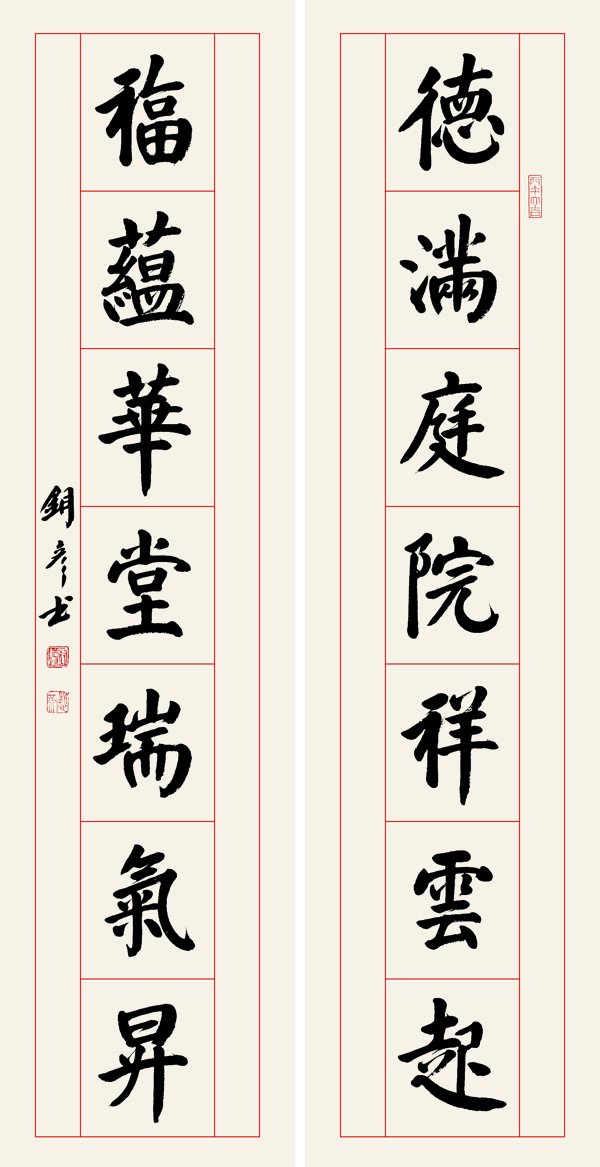 德滿庭院祥雲起
福蘊華堂瑞氣昇